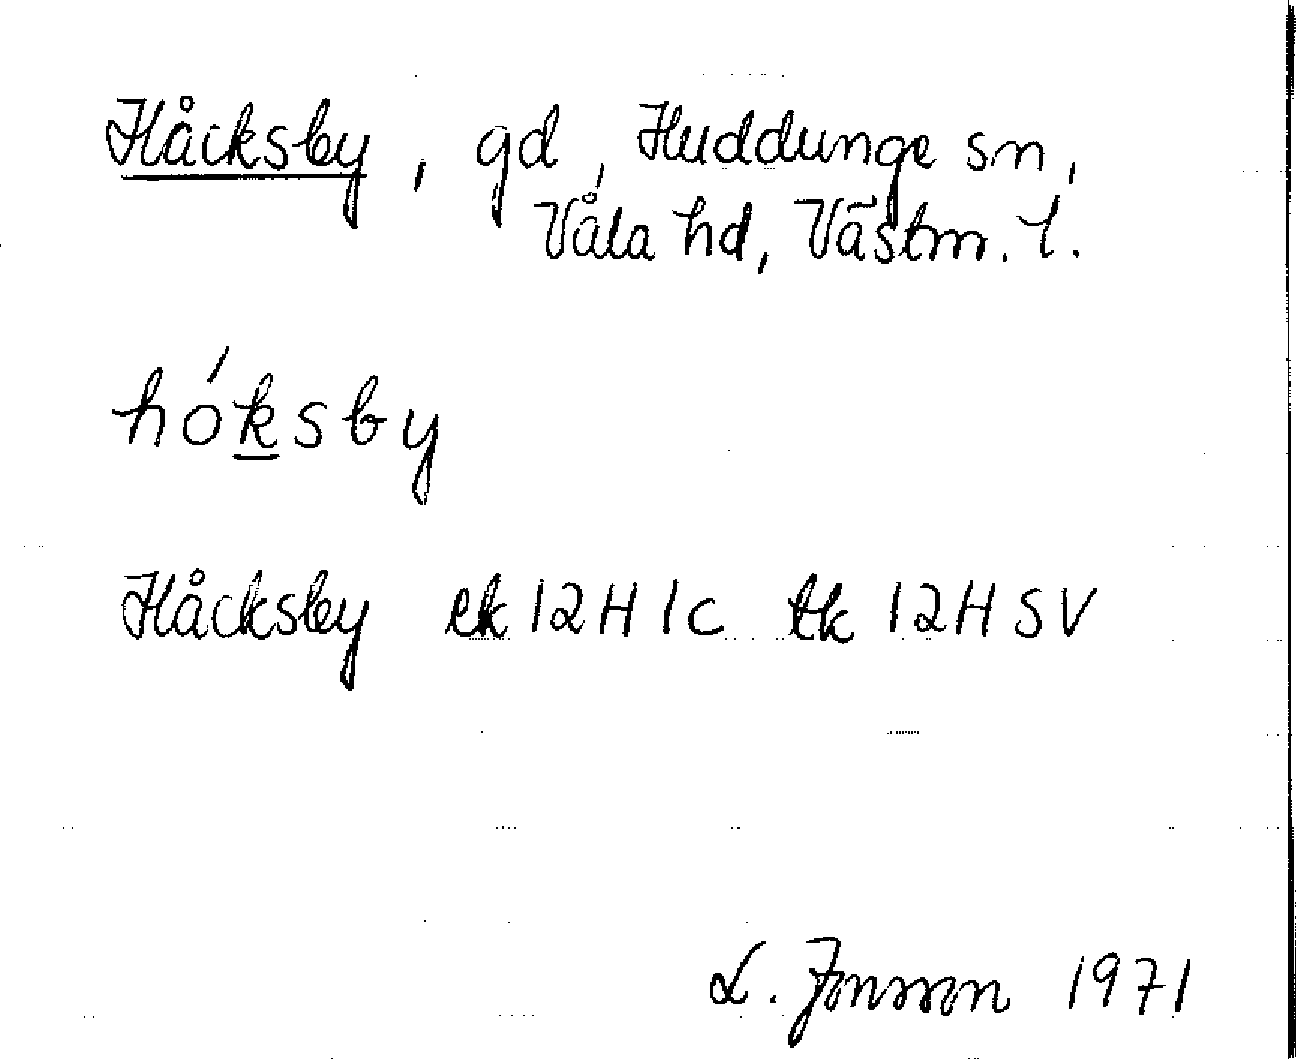 Håcksby, gd, Huddunge sn,
Våla hd, Västm. l.
hók̲sby
Håcksby ek 12H 1c tk 12H SV
L. Jonsson 1971